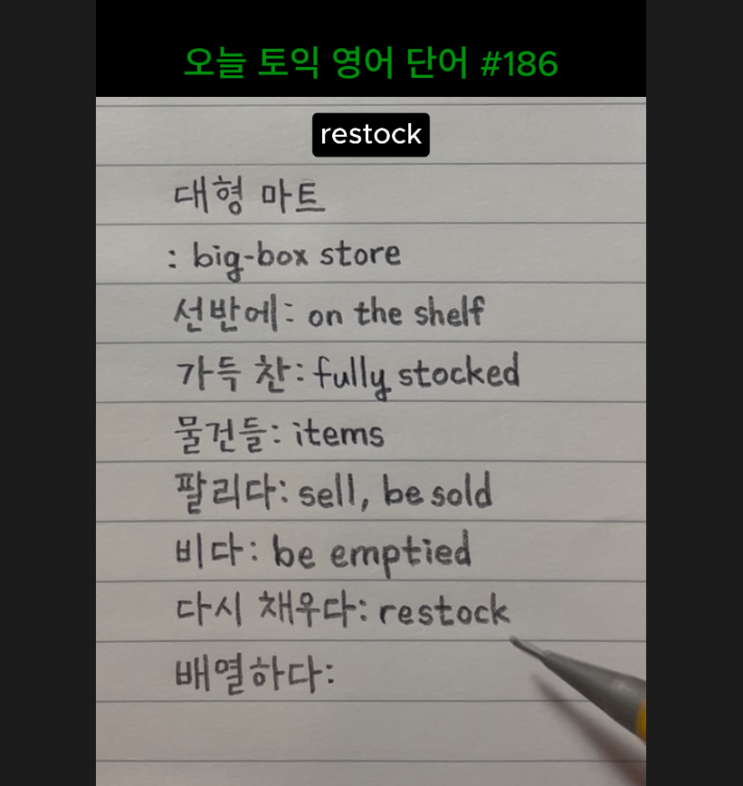 오늘 토익 영어 단어 #186
restock
대형 마트
: big-box store
선반에: on the shelf
가득 찬: fully stocked
물건들: items
팔리다: sell, be sold
비다: be emptied
다시 채우다: restock
배열하다: